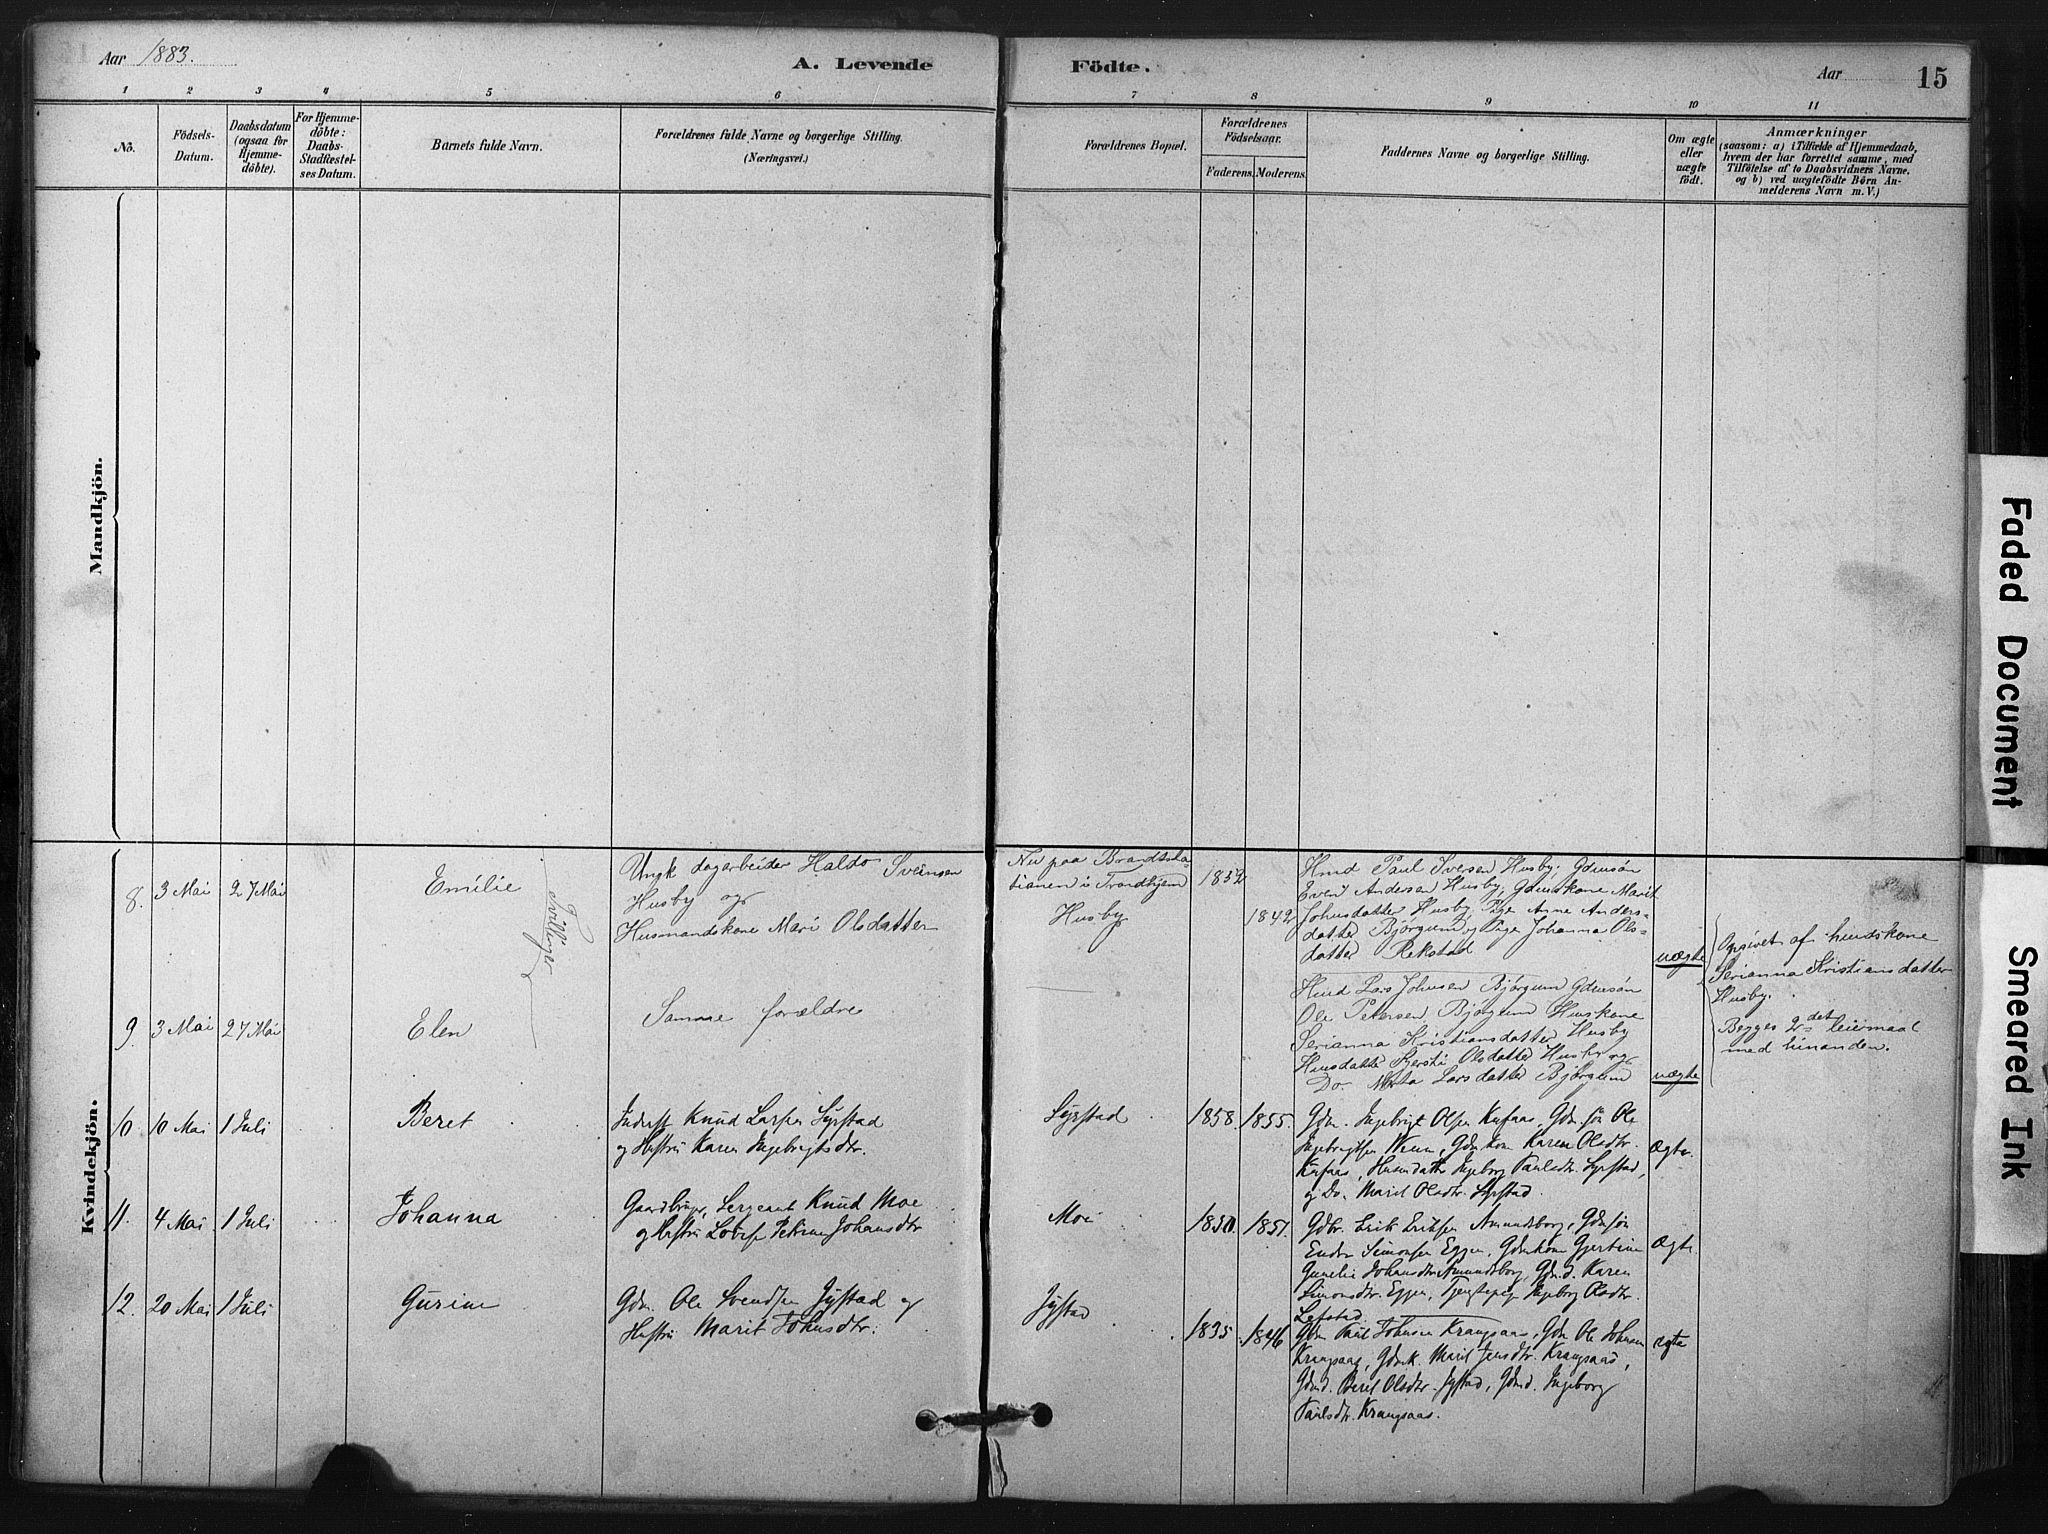 Aar 1883.
A. Levende
Födte.
Aar
15
1 2 3 4 5 6 7 8 9 10 11
No.
Födsels-
Datum.
Daabsdatum
(ogsaa for
Hjemme-
döbte).
For Hjemme-
döbte:
Daabs-
Stadfæstel-
ses Datum.
Barnets fulde Navn.
Forældrenes fulde Navne og borgerlige Stilling.
(Næringsvei.)
Forældrenes Bopæl.
Forældrenes
Födselsaar.
Faderens. Moderens.
Faddernes Navne og borgerlige Stilling.
Om ægte
eller
uægte
födt.
Anmærkninger
(saasom: a) i Tilfælde af Hjemmedaab,
hvem der har forrettet samme, med
Tilföielse af to Daabsvidners Navne.
og b) ved uægtefödte Börn An-
melderens Navn m. V.)
Mandkjön.
Kvindekjön.
8. 3 Mai 27 Mai
Emilie
Tvillinger
Ungk dagarbeider Haldo Sveinsen
Husby og
Husmandskone Mari Olsdatter
Nu paa Brandsta-
tionen i Trondhjem
Husby
1852
1842
Hmd Paul Iversen Husby; Gdmsøn
Even Andersen Husby; Gdmskone Marit
Johnsdatter Husby; Pige Anne Anders-
datter Bjørgum og Pige Johanna Ols-
datter Rekstad
uægte
Opgivet af huuskone
Serianna Kristiansdatter
Husby.
Begges 2det leiermaal
med hinanden.
9. 3 Mai 27 Mai
Elen
Samme forældre
Hmd Lars Johnsen Bjørgum Gdmsøn
Ole Petersen Bjørgum Huskone
Serianna Kristiansdatter Husby
Husdatter Kjersti Olsdatter Husby og
Do. Marta Larsdatter Bjørgum
uægte
10. 10 Mai 1 Juli
Beret
Inderst Knud Larsen Syrstad
og Hustru Karen Ingebrigtsdtr.
Syrstad
1858. 1855.
Gdm. Ingebrigt Olsen Kufaas, Gdm søn Ole
Ingebrigtsen Wenn, Gdmkon Karen Olsdtr.
Kufaas, Husmdatter Ingeborg Paulsdtr. Syrstad,
og Do. Marit Olsdtr. Syrstad.
Ægte.
11. 4 Mai 1 Juli
Johanna
Gaardbruger, Sergeant Knud Moe
og Hustru Lovise Petrine Johansdtr
Moe
1850. 1851.
Gdbr. Erik Eriksen Amundsborg, Gdmsøn
Ender Simonsen Eggen, Gdmkone Gjertine
Gunelie Johansdtr Amundsborg, Gdmd. Karen
Simonsdtr. Eggen, Tjenstepige Ingeborg Olsdtr.
Lefstad.
Ægte
12. 20 Mai 1 Juli
Gurine
Gdm. Ole Svendsen Jystad og
Hustru Marit Johnsdtr.
Jystad
1835. 1846
Gdm Paul Johnsen Krangsaas, Gdm Ole Johnsen
Krangsaas, Gdmk. Marit Jensdtr. Krangsaas,
Gdmd. Beret Olsdtr. Jystad, Gdmd. Ingeborg
Paulsdtr. Krangsaas.
ægte
Faded Document
Smeared Ink